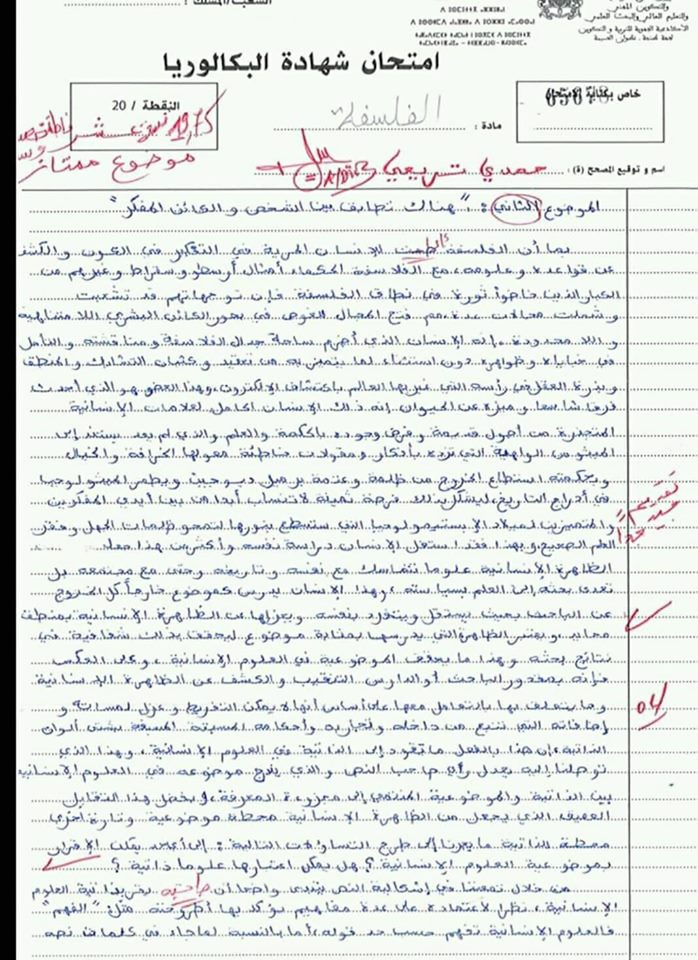 الشعب(ة)/المسلك :
والتكوين المهني
والتعليم العالي والبحث العلمي
الأكاديمية الجهوية للتربية والتكوين
امتحان شهادة البكالوريا
خاص بكتابة الامتحان
النقطة / 20
19,75
مادة : الفلسفة
موضوع ممتاز
اسم و توقيع المصحح (ة) :
الموضوع الثاني : "هناك تطابق بين الشخص و الكائن المفكر"
بما أن الفلسفة للإنسان الحرية في التفكير في الكون و الكشف
عن قواعده و علومه، مع الفلاسفة الحكماء أمثال أرسطو و سقراط و غيرهم من
الكبار الذين خاضوا ثورة في نطاق الفلسفة فإن توجهاتهم قد تشعبت
و شملت مجالات عدة، فتح المجال الغوص في بحور الكائن البشري اللا متناهية
و اللا محدودة، إنه الإنسان الذي أضرم ساحة جدال الفلاسفة و مناقشته و التأمل
في خباياه و ظواهره دون استثناء لما يتميز به من تعقيد و المنطق
و بذرة العقل في رأسه التي غير بها العالم باكتشاف الإلكترون، و هذا العضو هو الذي أحدث
فرقا شاسعا و ميزه عن الحيوان إنه ذلك الإنسان الحامل لعلامات الإنسانية
المتجذرة من أصول قديمة و فرض وجوده بالحكمة والعلم والذي لم يعد يستند إلى
الواهية التي تزوده بأفكار و مقولات خاطئة الخرافة و الخيال
و بحكمته استطاع الخروج من ظلمة و عتمة برميل ديوجين و يطمر الميثولوجيا
في أدراج التاريخ، ليشكل بذلك فرصة ثمينة لا تنساب أبدا من بين أيدي المفكرين
و المتميزين لميلاد الإبستيمولوجيا التي ستسطع بنورها لتمحو ظلمات الجهل و
العلم الصحيح و بهذا فقد استغل الإنسان دراسة نفسه و أكثر من هذا
تقديم جيد جدا
الظاهرة الإنسانية علوما تتماسك مع نفسه و تاريخه و حتى مع مجتمعه بل
تعدى بحثه إلى العلم بسياسته، و هذا الإنسان يدرس كموضوع خارجا كل الخروج
عن الباحث بحيث يستقل و يتفرد بنفسه و يعزلها عن الظاهرة الإنسانية بمنطق
محايد و يعتبر الظاهرة التي يدرسها بمثابة موضوع ليحقق بذلك شفافية في
نتائج بحثه و هذا ما يحقق الموضوعية في العلوم الإنسانية، و على العكس
فإنه بمقدور الباحث أو الدارس التنقيب و الكشف عن الظاهرة الإنسانية
04
و ما يتعلق بها بالتعامل معها على أساس أنها لا يمكن التفريط و عزل لمساته و
إضافاته التي تنبع من داخله و تجاربه و أحكامه المسبقة بشتى ألوان
الذاتية، إن هذا بالفعل ما يقود إلى الذاتية في العلوم الإنسانية، و هذا الذي
توصلنا إليه بجدل رأي صاحب النص و الذي يلج موضوعه في العلوم الإنسانية
بين الذاتية والموضوعية المنتمي إلى مجزوءة المعرفة، و بفضل هذا التقابل
العميق الذي يجعل من الظاهرة الإنسانية محطة موضوعية و تارة أخرى
محطة الذاتية ما يجرنا إلى طرح التساؤلات التالية : إلى أي حد يمكن الإقرار
بموضوعية العلوم الإنسانية؟ هل يمكن اعتبارها علوما ذاتية؟
من خلال تمعننا في إشكالية النص يتبدى واضحا أن صاحبه العلوم
الإنسانية، نظرا لاعتماده على عدة مفاهيم يؤكد بها أطروحته مثل: "الفهم"
فالعلوم الإنسانية تفهم حسب حد قوله، أما بالنسبة لما جاء في كلمات نصه